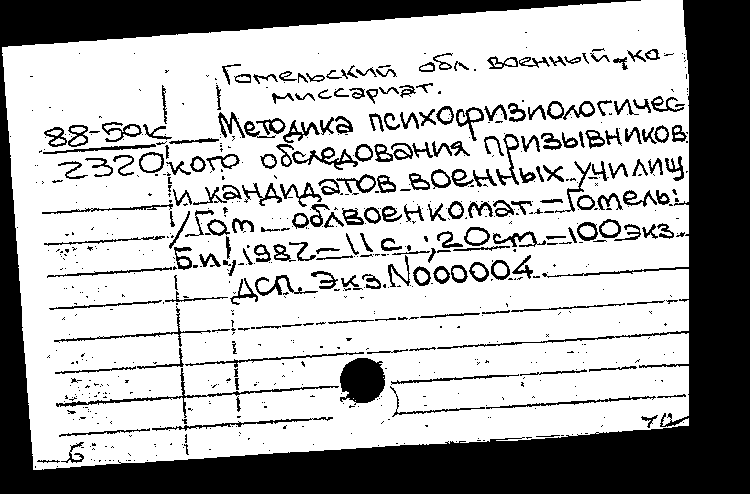 Гомельский обл. военный ко-
миссариат.
88-50к Методика психофизиологичес-
2320 кого обследования призывников
и кандидатов военных училищ
/Гом. облвоенкомат.-Гомель:
Б.и., 1987.-11с.; 20см.-100экз.
ДСП. Экз.N000004.
Б